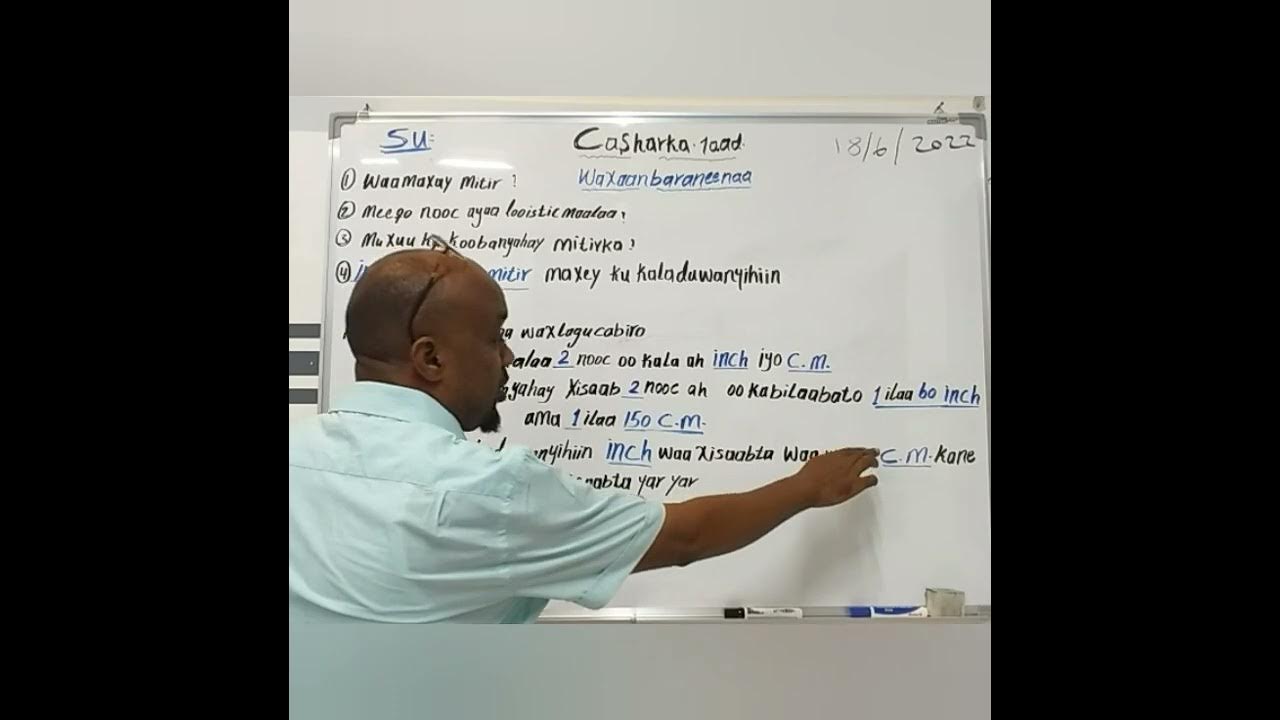 SU: Casharka 1aad. 18/6/2022
① Waamaxay Mitir? Waxaanbaraneenaa
② Meeqo nooc ayaa looisticmaalaa?
③ Muxuu koobanyahay mitirka?
④ mitir maxey ku kaladuwanyihiin
waxlagucabiro
alaa 2 nooc oo kala ah inch iyo C.M.
yahay Xisaab 2 nooc ah oo kabilaabato 1 ilaa 60 inch
ama 1 ilaa 150 C.M.
nyihiin inch waa Xisaabta C.M. kane
abta yar yar